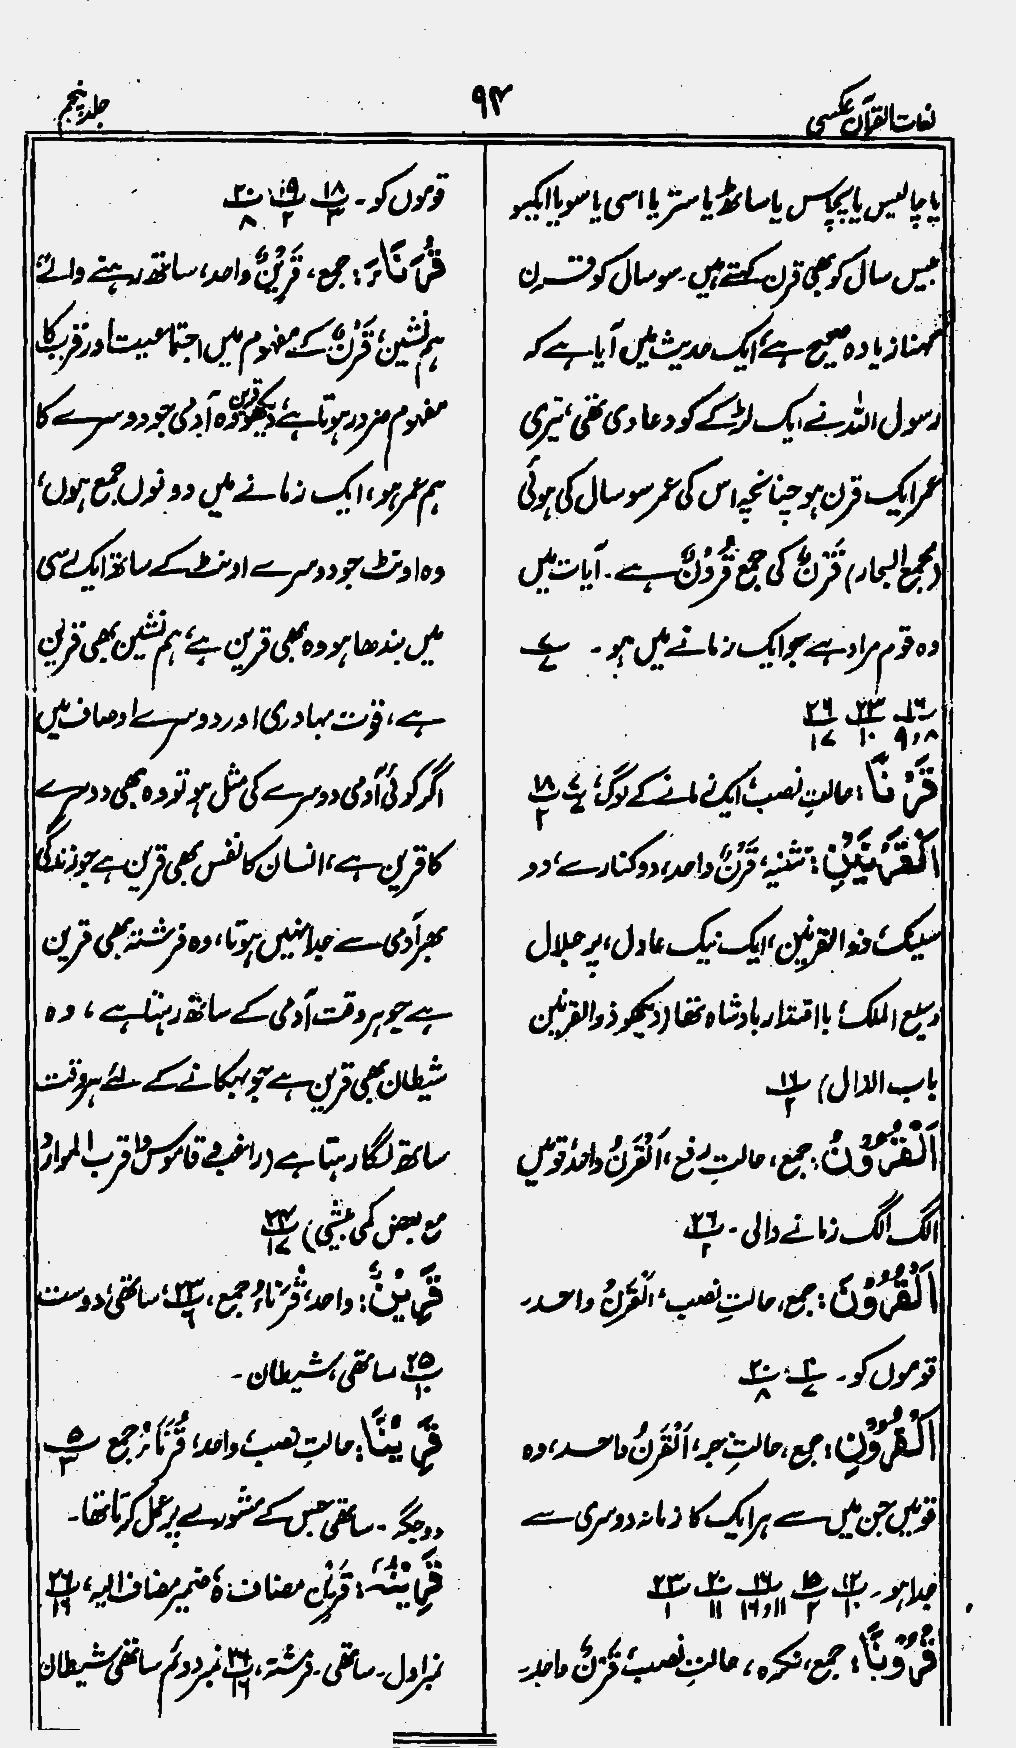 لغات القرآن عکسی
۹۴
جلد پنجم
یا چالیس یا پچاس یا ساٹھ یا ستر یا اسی یا سو یا ایکسو
بیس سال کو بھی قرن کہتے ہیں۔ سو سال کو قرن
کہنا زیادہ صحیح ہے، ایک حدیث میں آیا ہے کہ
رسول اللہ نے ایک لڑکے کو دعا دی تھی، تیری
عمر ایک قرن ہو چنانچہ اس کی عمر سو سال کی ہوئی
(مجمع البحار) قَرْنٌ کی جمع قُرُوْنٌ ہے۔ آیات میں
وہ قوم مراد ہے جو ایک زمانے میں ہو۔ پ۷/۷
پ۱۶/۹،۸ پ۲۳/۱۰ پ۲۶/۱۷
قَرْنًا: حالتِ نصب، ایک زمانے کے لوگ، پ۷/۷ پ۱۸/۲
اَلْقَرْنَيْنِ: تثنیہ، قَرْنٌ واحد، دو کنارے، دو
سینگ، ذو القرنین، ایک نیک عادل، پر جلال
وسیع الملک، با اقتدار بادشاہ تھا (دیکھو ذو القرنین
باب الذال) پ۱۶/۲
اَلْقُرُوْنُ: جمع، حالتِ رفع، اَلْقَرْنُ واحد، قومیں
الگ الگ زمانے والی۔ پ۲۶/۲
اَلْقُرُوْنَ: جمع، حالتِ نصب، اَلْقَرْنُ واحد۔
قوموں کو۔ پ۲۰/۸
اَلْقُرُوْنِ: جمع، حالتِ جر، اَلْقَرْنُ واحد، وہ
قومیں جن میں سے ہر ایک کا زمانہ دوسری سے
جدا ہو۔ پ۱۲/۱۰ پ۱۵/۲ پ۱۶/۱۱،۱۶ پ۲۰/۱۱ پ۲۳/۱
قُرُوْنًا: جمع، نکرہ، حالتِ نصب، قَرْنٌ واحد۔
قوموں کو۔ پ۱۸/۳ پ۱۹/۲ پ۲۰/۸
قُرَنَاءَ: جمع، قَرِيْنٌ واحد، ساتھ رہنے والے،
ہم نشین، قَرْنٌ کے مفہوم میں اجتماعیت اور قرب کا
مفہوم ضرور ہوتا ہے، دیکھو قرین وہ آدمی جو دوسرے کا
ہم عمر ہو، ایک زمانے میں دونوں جمع ہوں،
وہ اونٹ جو دوسرے اونٹ کے ساتھ ایک رسی
میں بندھا ہو وہ بھی قرین ہے، ہم نشین بھی قرین
ہے، قوت بہادری اور دوسرے اوصاف میں
اگر کوئی آدمی دوسرے کی مثل ہو تو وہ بھی دوسرے
کا قرین ہے، انسان کا نفس بھی قرین ہے جو زندگی
بھر آدمی سے جدا نہیں ہوتا، وہ فرشتہ بھی قرین
ہے جو ہر وقت آدمی کے ساتھ رہتا ہے، وہ
شیطان بھی قرین ہے جو بہکانے کے لئے ہر وقت
ساتھ لگا رہتا ہے (راغب و قاموس و اقرب الموارد
مع بعض کمی بیشی) پ۲۴/۱۷
قَرِيْنٌ: واحد، قُرَنَاءُ جمع، پ۲۳/۶، ساتھی، دوست
پ۲۵/۱۰ ساتھی، شیطان۔
قَرِيْنًا: حالتِ نصب، واحد، قُرَنَاءُ جمع پ۵/۳
دو جگہ۔ ساتھی جس کے مشورے پر عمل کرتا تھا۔
قَرِيْنُهٗ: قَرِيْنُ مضاف، ہٗ ضمیر مضاف الیہ، پ۲۶/۱۶
نمبر اول۔ ساتھی۔ فرشتہ، پ۲۶/۱۶ نمبر دوئم ساتھی شیطان